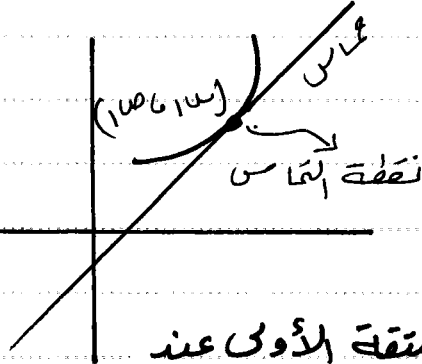 مماس
(س١ ، ص١)
نقطة التماس
شتقة الأولى عند